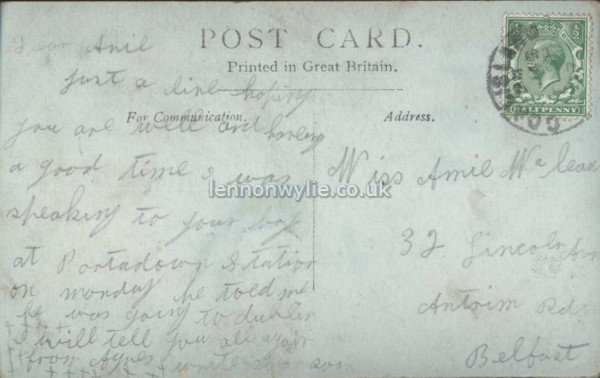 POST CARD.
Printed in Great Britain.
For Communication.
Address.
Dear Amil
Just a line hoping
you are well and having
a good time I was
speaking to your
at Portadown Station
on monday he told me
he was going to dublin
I will tell you all again
from Agnes write soon
Miss Amil McClean
32 Lincoln Ave
Antrim Rd.
Belfast
HALFPENNY
lennonwylie.co.uk